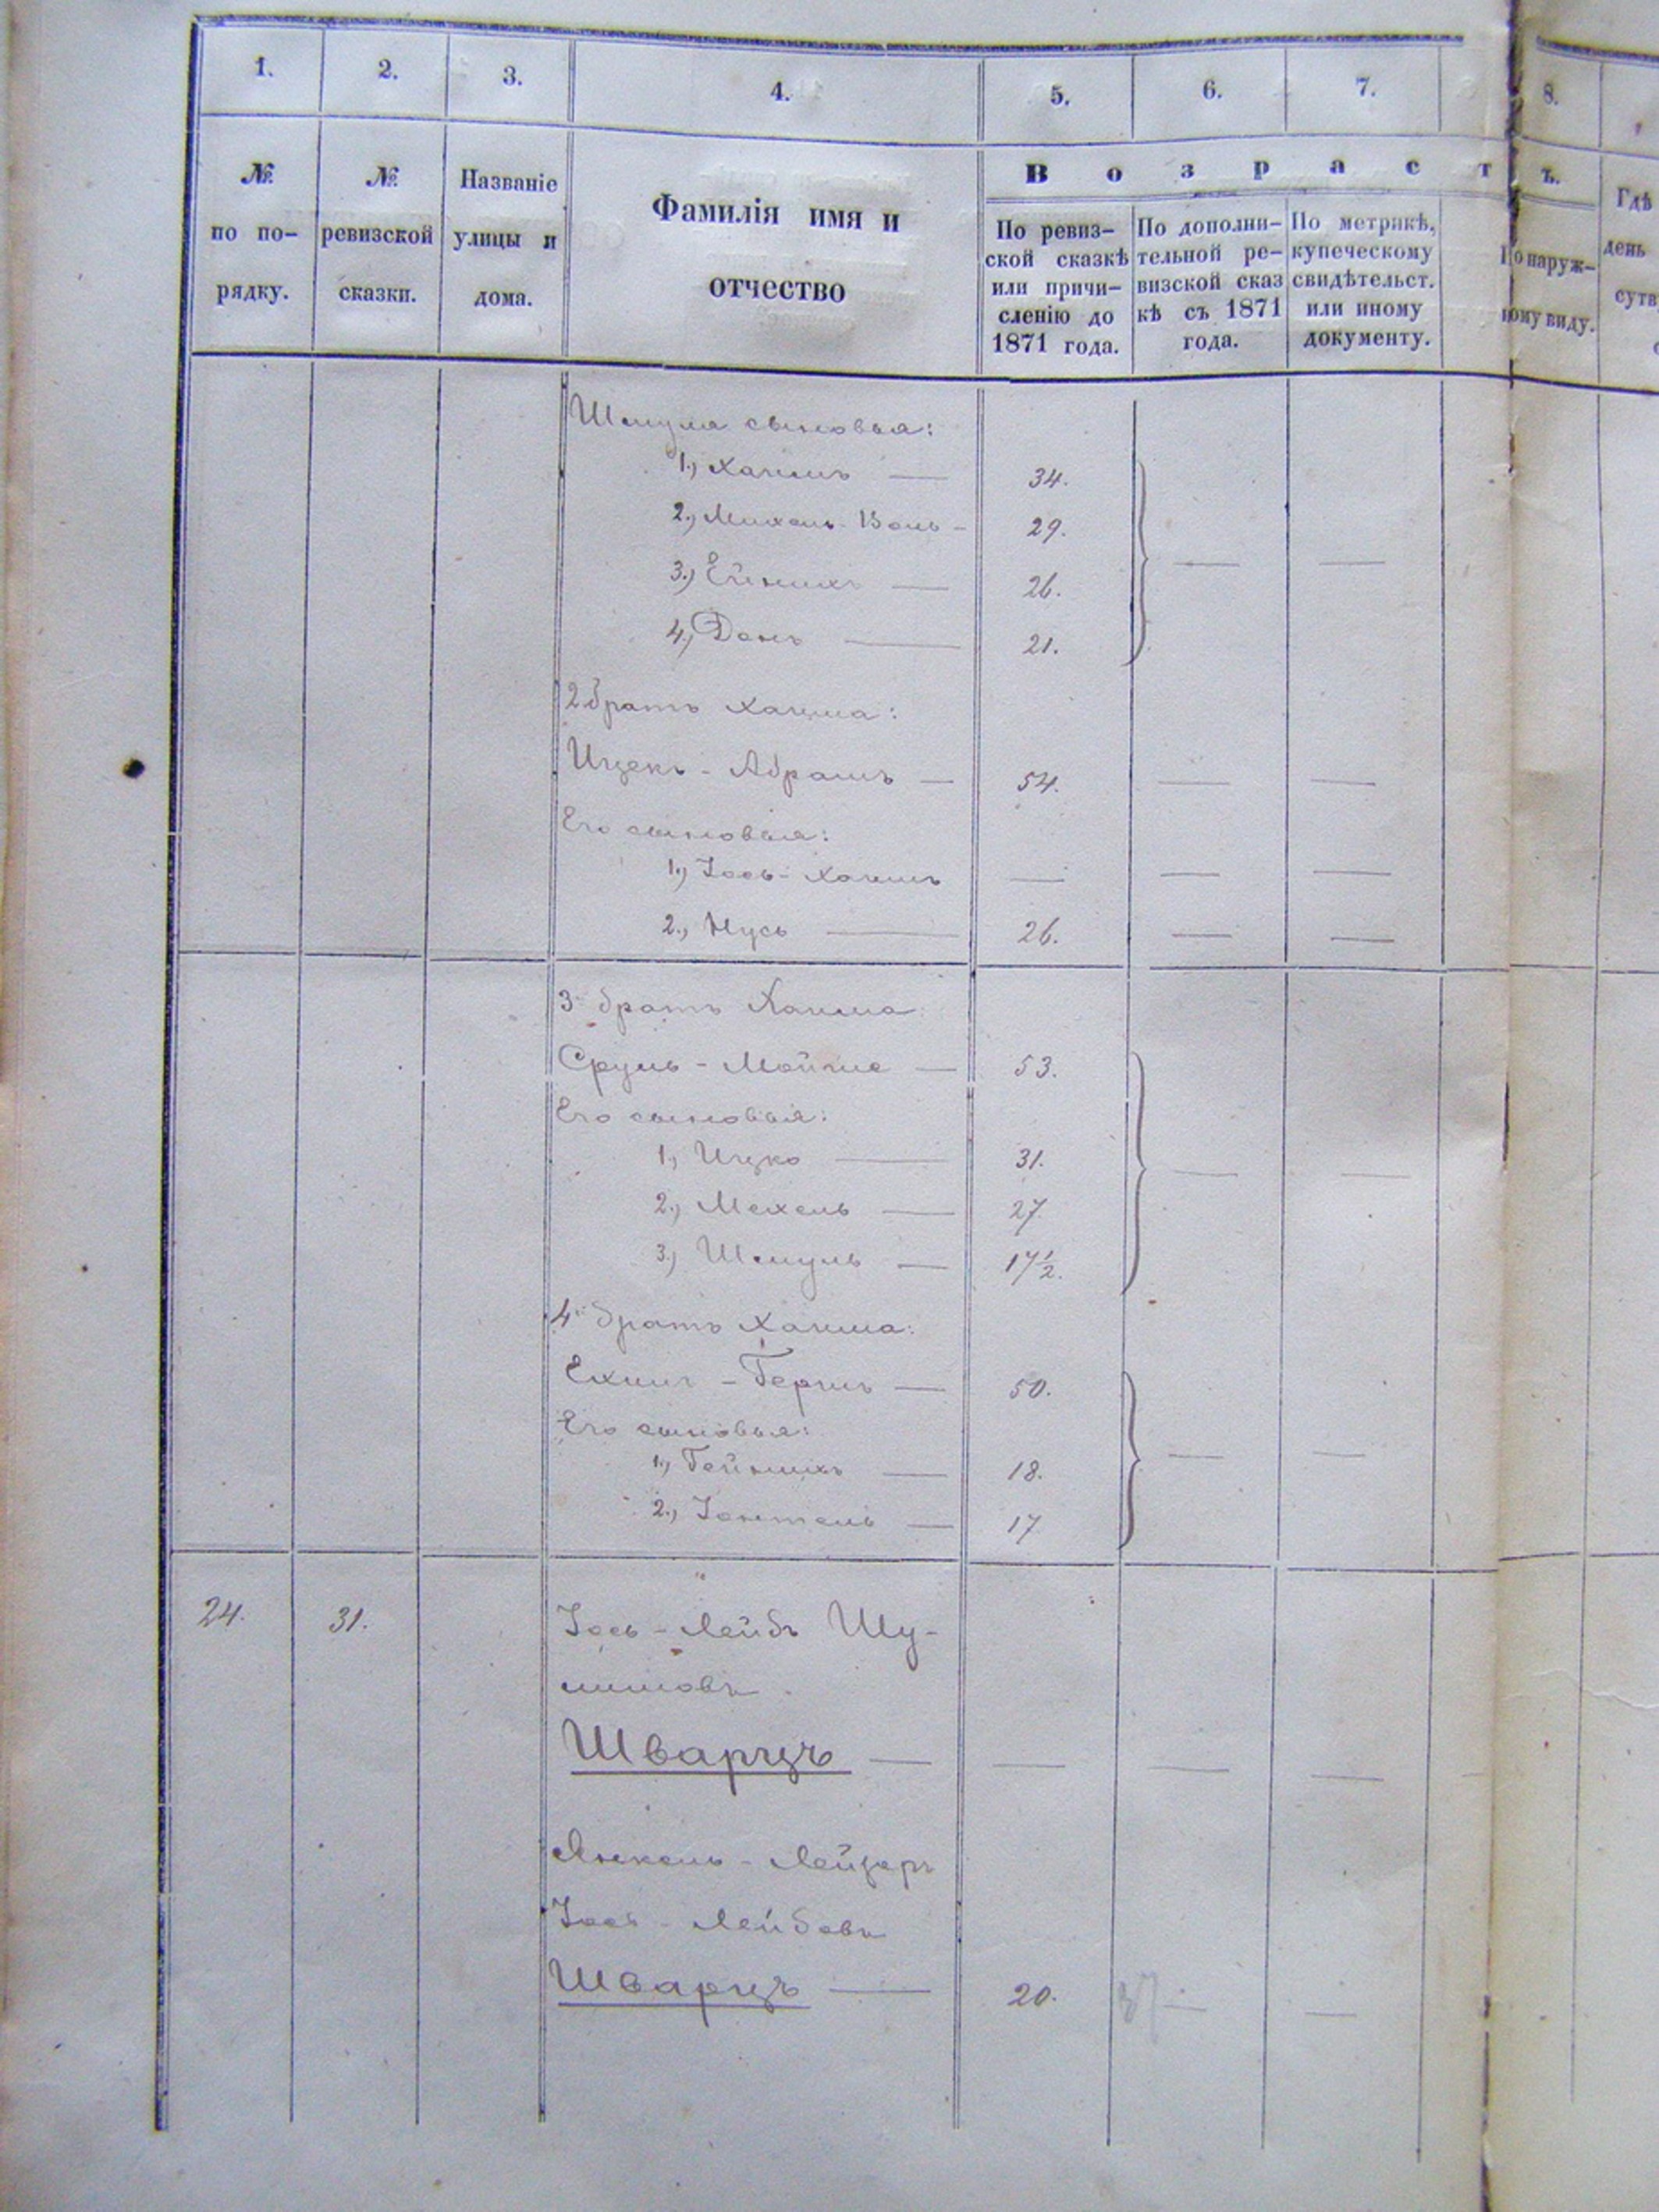 1. 2. 3. 4. 5. 6. 7. 8.
№ по по-
рядку.
№ ревизской
сказки.
Названіе
улицы и
дома.
Фамилія имя и
отчество
Возрастъ.
По ревиз-
ской сказкѣ
или причи-
сленію до
1871 года.
По дополни-
тельной ре-
визской сказ
кѣ съ 1871
года.
По метрикѣ,
купеческому
свидѣтельст.
или иному
документу.
По наруж-
ному виду.
Гдѣ
день
сутв
Шмуля сыновья:
1., Хаимъ — 34.
2., Михель-Воль — 29.
3.) Ейнихъ — 26.
4.) Донъ — 21.
2 братъ Хаима:
Ицекъ - Абрамъ — 54. — —
Его сыновья:
1.) Іось - Хаимъ — — —
2., Нусь — 26. — —
3 братъ Хаима:
Сруль - Мойше — 53.
Его сыновья:
1., Ицко — 31. — —
2., Мехель — 27
3.) Шмуль — 17 1/2.
4й братъ Хаима:
Ехиил - Гершъ — 50.
Его сыновья:
1.) Гейнихъ — 18. — —
2., Іонтель — 17
24. 31. Іось - Лейбъ Шу-
лимовъ
Шварцъ — — — —
Янкель - Лейзеръ
Іось - Лейбовъ
Шварцъ — 20. 37 — —